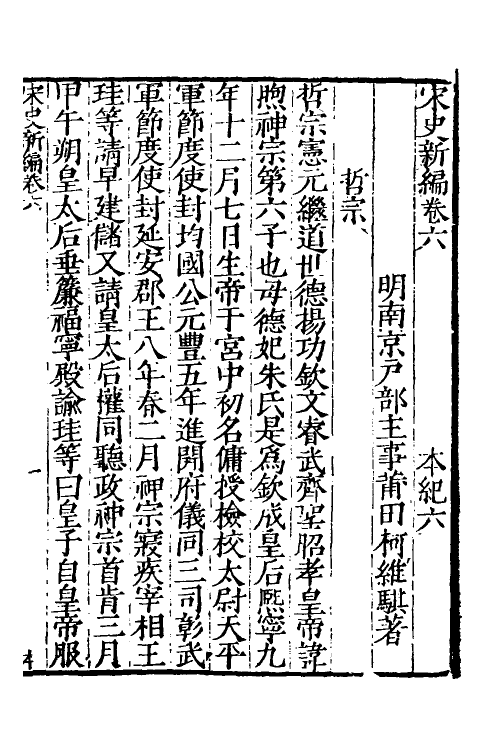 宋史新編卷六　本紀六
明南京戸部主事莆田柯維騏著
哲宗
哲宗憲元繼道世德揚功欽文睿武齊聖昭孝皇帝諱
煦神宗第六子也母德妃朱氏是爲欽成皇后熈寧九
年十二月七日生帝于宮中初名傭授檢校太尉天平
軍節度使封均國公元豐五年進開府儀同三司彰武
軍節度使封延安郡王八年春二月神宗寢疾宰相王
珪等請早建儲又請皇太后權同聽政神宗首肯三月
甲午朔皇太后垂簾福寧殿諭珪等曰皇子自皇帝服
宋史新編卷六
一